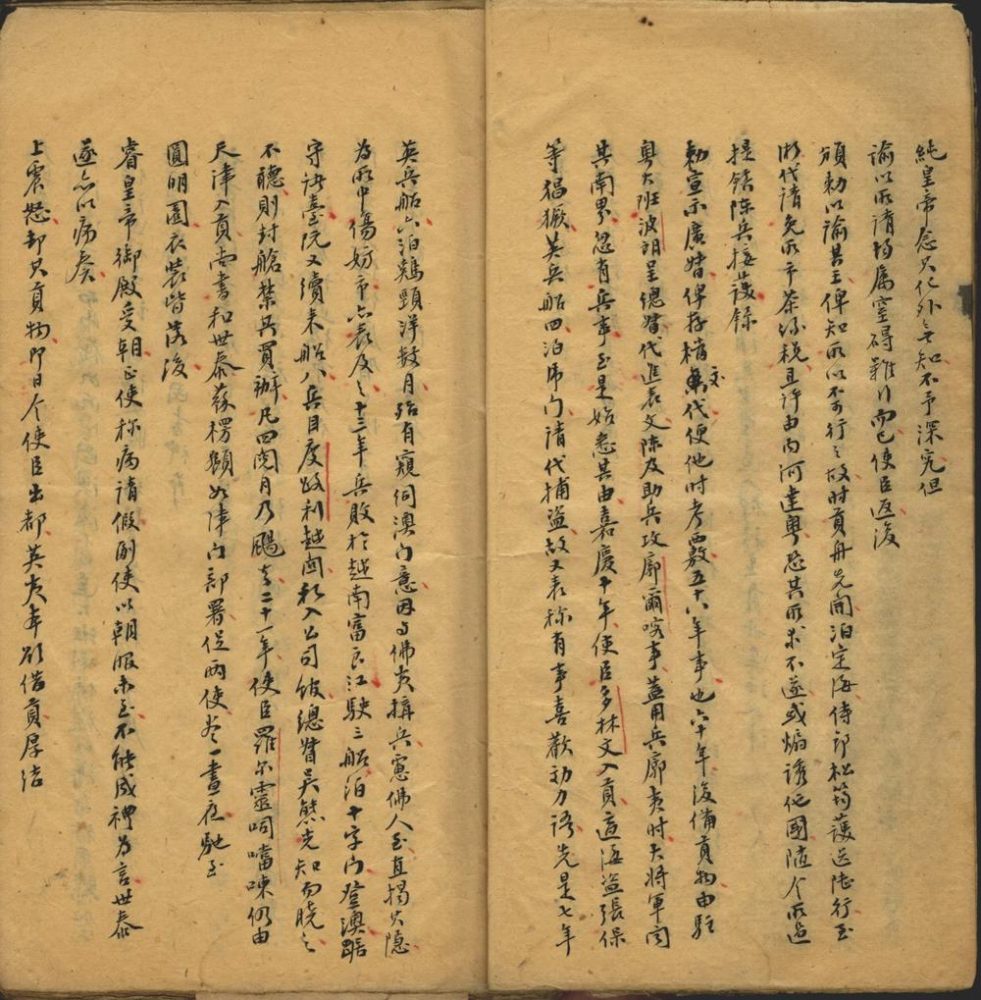 純皇帝念其化外無知不予深究但
諭以所請均屬窒碍難行而已使臣返復
頒勅以諭其王俾知所以不可行之故時貢舟先開泊定海侍郎松筠護送陸行至
浙代請免所市茶絲稅且許由內河達粵恐其所求不遂或煽誘他國隨令所過
提鎮陳兵接護錄
勅宣示廣督俾存檔交代便他時考覈五十八年事也六十年復備貢物由駐
粵大班波朗呈總督代進表文陳及助兵攻廓爾喀事蓋用兵廓夷時大將軍聞
其南界忽有兵事至是始悉其由嘉慶十年使臣多林文入貢適海盜張保
等猖獗英兵船四泊虎門請代捕盜故又表稱有事喜歡効力語先是七年
英兵船六泊鷄頸洋數月殆有窺伺澳門意因与佛夷搆兵慮佛人至直揭其隱
為所中傷妨市亦表及之十三年兵敗於越南富良江駛三船泊十字門登澳踞
守訴臺院又續来船八兵目度路利越闖瓥入公司館總督吳熊光知而曉之
不聽則封艙禁其買辦凡四閱月乃颺去二十一年使臣羅尔靈呵噹唻仍由
天津入貢尚書和世泰蘇楞額如津門部署促兩使臣一晝夜馳至
圓明園衣裝皆落後
睿皇帝御殿受朝正使称病請假副使以朝服未至不能成禮为言世泰
遂亦以病奏
上震怒却其貢物即日令使臣出都英夷本欲借貢厚結